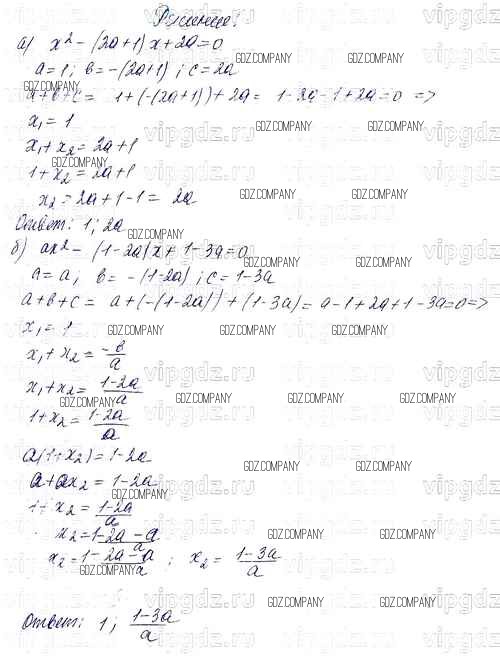 Решение:
а) x² - (2a+1)x + 2a = 0
a = 1; в = -(2a+1); c = 2a
a+в+c = 1+(-(2a+1))+2a = 1-2a-1+2a=0 =>
x₁ = 1
x₁+x₂ = 2a+1
1+x₂ = 2a+1
x₂ = 2a+1-1 = 2a
Ответ: 1; 2a
б) ax² - (1-2a)x + 1-3a = 0
a = a; в = -(1-2a); c = 1-3a
a+в+c = a+(-(1-2a))+(1-3a) = a-1+2a+1-3a=0 =>
x₁ = 1
x₁+x₂ = -в/a
x₁+x₂ = (1-2a)/a
1+x₂ = (1-2a)/a
a(1+x₂) = 1-2a
a+ax₂ = 1-2a
1+x₂ = (1-2a)/a
x₂ = (1-2a-a)/a
x₂ = (1-2a-a)/a ; x₂ = (1-3a)/a
Ответ: 1; (1-3a)/a
GDZ.COMPANY
vipgdz.ru